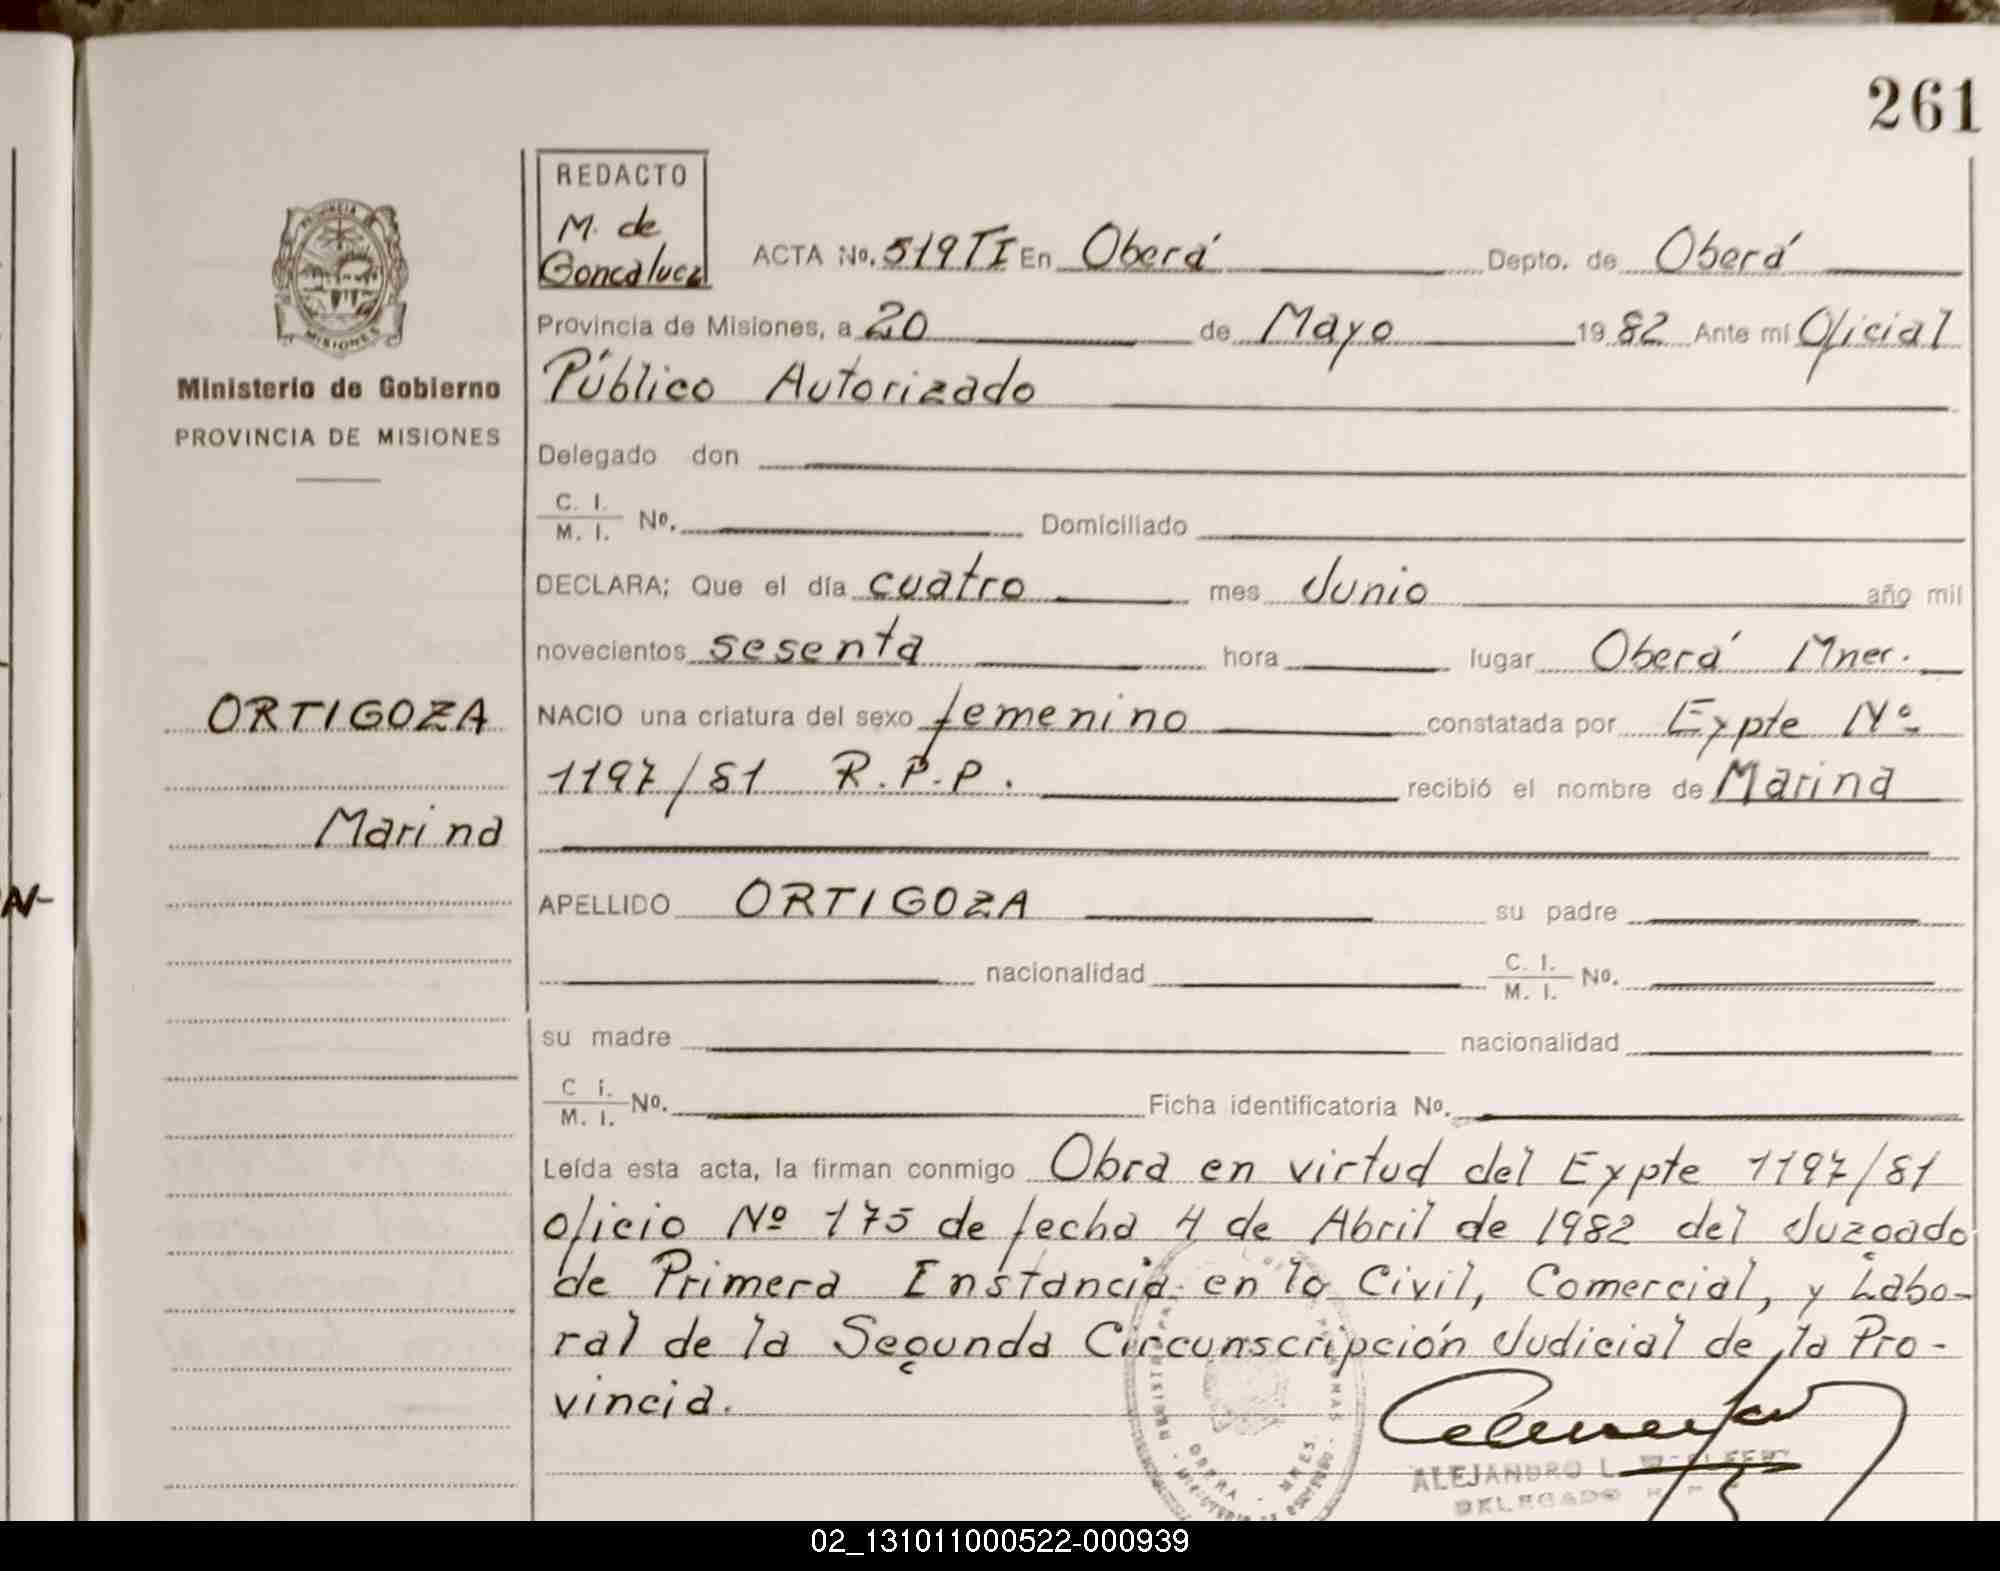 261
REDACTO
M. de
Goncalvez
ACTA No. 519TI En Oberá Depto. de Oberá
PROVINCIA
MISIONES
Provincia de Misiones, a 20 de Mayo 1982 Ante mí Oficial
Ministerio de Gobierno
Público Autorizado
PROVINCIA DE MISIONES
Delegado don
C. I.
M. I. No. Domiciliado
DECLARA; Que el día cuatro mes Junio año mil
novecientos sesenta hora lugar Oberá Mnes.
ORTIGOZA
NACIO una criatura del sexo femenino constatada por Expte Nº
1197/81 R.P.P. recibió el nombre de Marina
Marina
N-
APELLIDO ORTIGOZA su padre
nacionalidad C. I.
M. I. No.
su madre nacionalidad
C i.
M. I. No. Ficha identificatoria No.
Leída esta acta, la firman conmigo Obra en virtud del Expte 1197/81
oficio Nº 175 de fecha 4 de Abril de 1982 del Juzgado
de Primera Instancia en lo Civil, Comercial, y Labo-
ral de la Segunda Circunscripción Judicial de la Pro-
vincia.
OBERA - MNES.
ALEJANDRO L.
DELEGADO
02_131011000522-000939